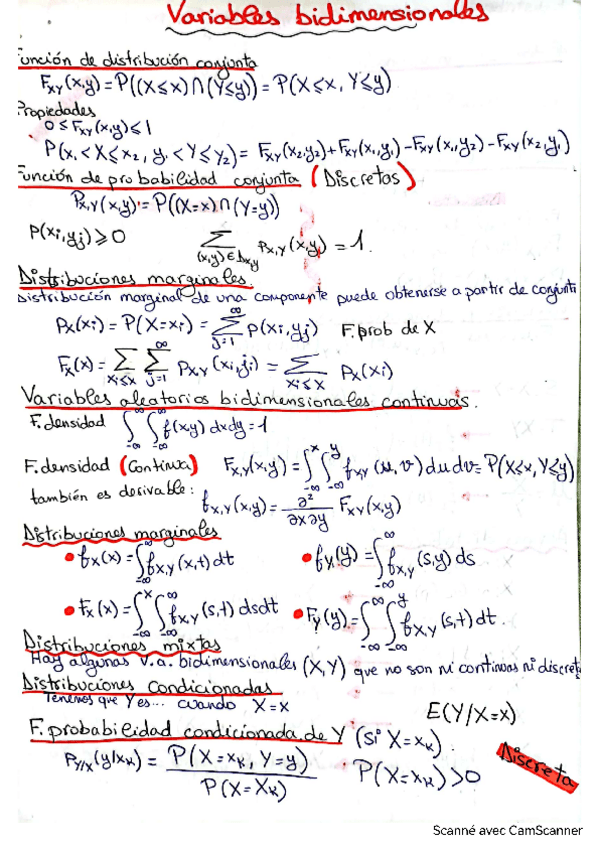 Variables bidimensionales
Función de distribución conjunta
F_XY(x,y) = P((X≤x)∩(Y≤y)) = P(X≤x, Y≤y)
Propiedades
0 ≤ F_XY(x,y) ≤ 1
P(x₁<X≤x₂, y₁<Y≤y₂) = F_XY(x₂,y₂)+F_XY(x₁,y₁)-F_XY(x₁,y₂)-F_XY(x₂,y₁)
Función de probabilidad conjunta (Discretas)
P_X,Y(x,y) = P((X=x)∩(Y=y))
P(xi,yj)≥0 ∑_(x,y)∈D_X,Y P_X,Y(x,y) = 1.
Distribuciones marginales.
Distribución marginal de una componente puede obtenerse a partir de conjunt
P_X(xi) = P(X=xi) = ∑_{j=1}^∞ p(xi,yj) F.prob de X
F_X(x) = ∑_{xi≤x} ∑_{j=1}^∞ P_X,Y(xi,yj) = ∑_{xi≤x} P_X(xi)
Variables aleatorios bidimensionales continuas.
F.densidad ∫_{-∞}^∞ ∫_{-∞}^∞ f(xy) dxdy = 1
F.densidad (Continua) F_X,Y(x,y) = ∫_{-∞}^x ∫_{-∞}^y f_X,Y(u,v) du dv = P(X≤x, Y≤y)
también es derivable: f_X,Y(x,y) = ∂²/∂x∂y F_XY(x,y)
Distribuciones marginales
• f_X(x) = ∫_{-∞}^∞ f_X,Y(x,t) dt • f_Y(y) = ∫_{-∞}^∞ f_X,Y(s,y) ds
• F_X(x) = ∫_{-∞}^x ∫_{-∞}^∞ f_X,Y(s,t) dsdt • F_Y(y) = ∫_{-∞}^∞ ∫_{-∞}^y f_X,Y(s,t) dt.
Distribuciones mixtas
Hay algunas v.a. bidimensionales (X,Y) que no son ni continuas ni discret
Distribuciones Condicionadas
Tenemos que Y es... cuando X=x
E(Y/X=x)
F.probabilidad condicionada de Y (si X=x_k).
P_Y/X(y/x_k) = P(X=x_k, Y=y) / P(X=X_k) · P(X=x_k)>0
Discreta
Scanné avec CamScanner